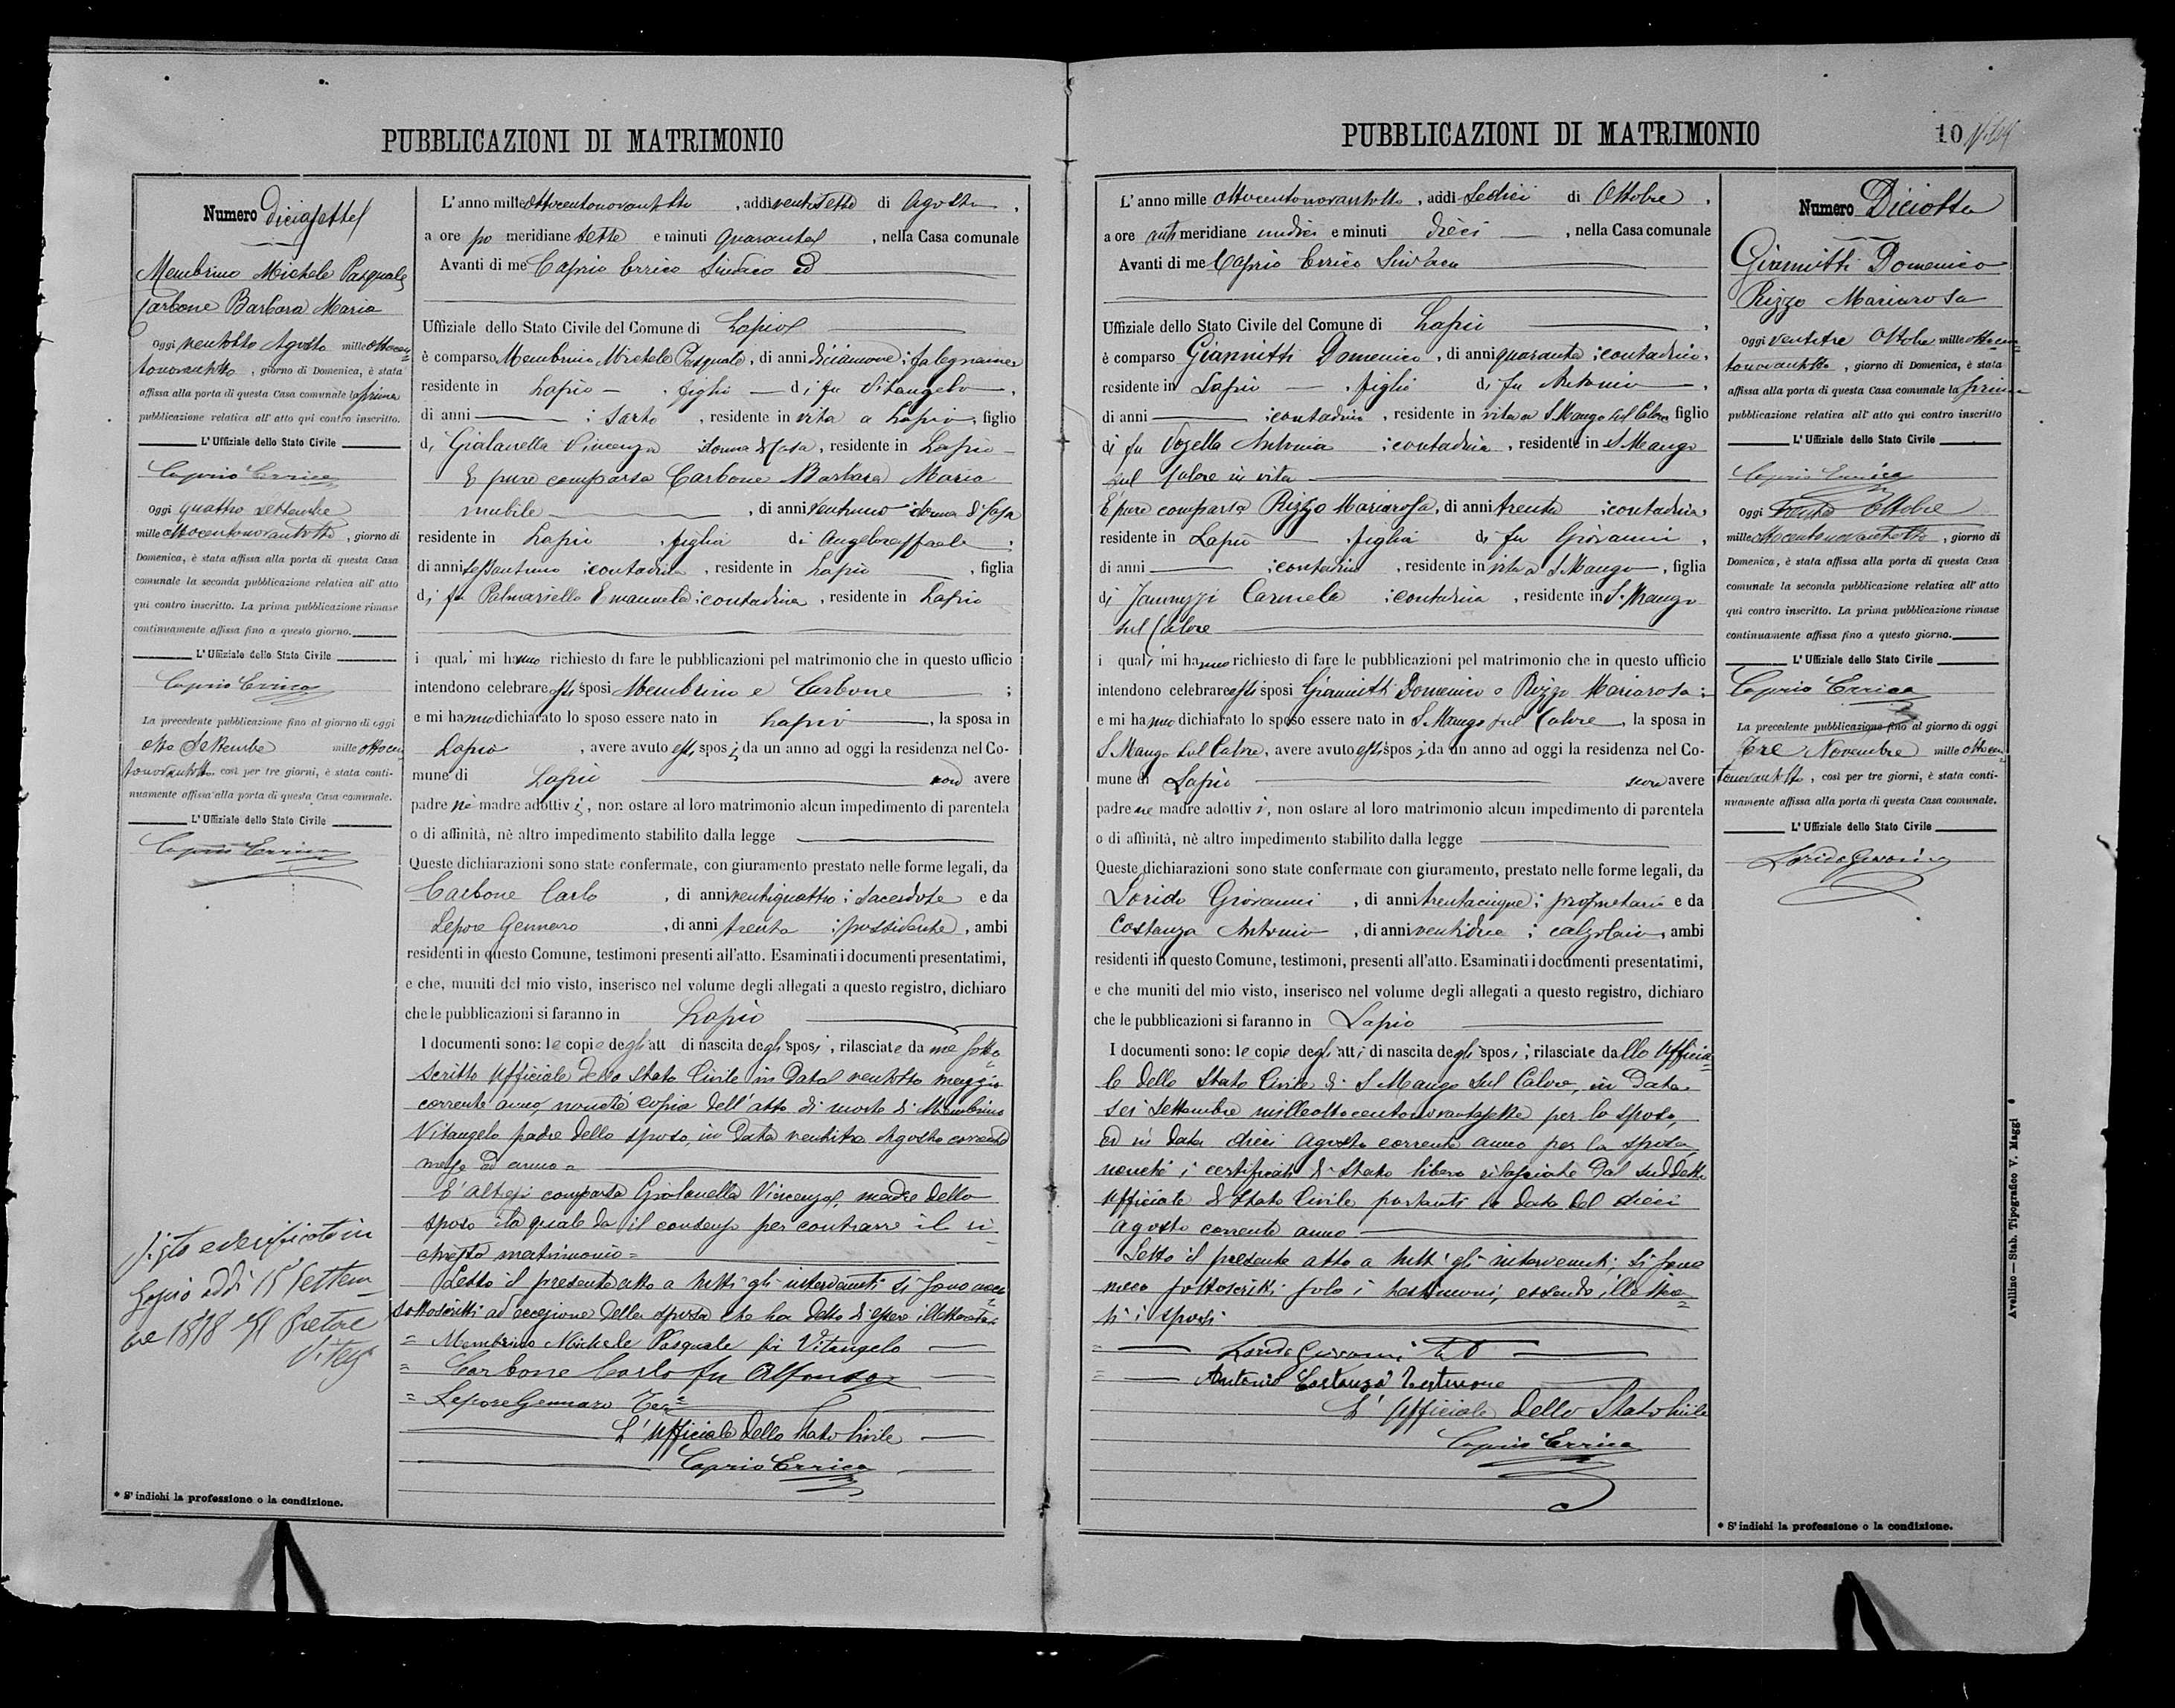 PUBBLICAZIONI DI MATRIMONIO
Numero diciasette
Membrino Michele Pasquale
Carbone Barbara Maria
Oggi ventotto Agosto mille ottocen=
tonovantotto, giorno di Domenica, è stata
affissa alla porta di questa Casa comunale la prima
pubblicazione relativa all' atto qui contro inscritto.
L' Uffiziale dello Stato Civile
Caprio Errico
Oggi quattro Settembre
mille ottocentonovantotto, giorno di
Domenica, è stata affissa alla porta di questa Casa
comunale la seconda pubblicazione relativa all' atto
qui contro inscritto. La prima pubblicazione rimase
continuamente affissa fino a questo giorno.
L' Uffiziale dello Stato Civile
Caprio Errico
La precedente pubblicazione fino al giorno di oggi
otto Settembre mille ottocen
tonovantotto così per tre giorni, è stata conti-
nuamente affissa alla porta di questa Casa comunale.
L' Uffiziale dello Stato Civile
Caprio Errico
Visto e verificato in
Lapio addì 15 Settem
bre 1898 Il Pretore
* S' indichi la professione o la condizione.
L' anno mille ottocentonovantotto, addì ventisette di Agosto,
a ore po meridiane sette e minuti quaranta, nella Casa comunale
Avanti di me Caprio Errico Sindaco ed
Uffiziale dello Stato Civile del Comune di Lapio
è comparso Membrino Michele Pasquale, di anni diciannove; falegname
residente in Lapio, figlio di fu Vitangelo,
di anni ; sarto, residente in vita a Lapio, figlio
di Giolanella Vincenza donna di Casa, residente in Lapio
È pure comparsa Carbone Barbara Maria
nubile, di anni ventuno donna di Casa
residente in Lapio, figlia di Angeloraffaele;
di anni sessantuno contadino, residente in Lapio, figlia
di fu Palmariello Emanuela; contadina, residente in Lapio
i quali mi hanno richiesto di fare le pubblicazioni pel matrimonio che in questo ufficio
intendono celebrare essi sposi Membrino e Carbone ;
e mi hanno dichiarato lo sposo essere nato in Lapio, la sposa in
Lapio, avere avuto essi sposi da un anno ad oggi la residenza nel Co-
mune di Lapio non avere
padre nè madre adottivi, non ostare al loro matrimonio alcun impedimento di parentela
o di affinità, nè altro impedimento stabilito dalla legge
Queste dichiarazioni sono state confermate, con giuramento prestato nelle forme legali, da
Carbone Carlo, di anni ventiquattro; Sacerdote e da
Lepore Gennaro, di anni trenta ; possidente, ambi
residenti in questo Comune, testimoni presenti all'atto. Esaminati i documenti presentatimi,
e che, muniti del mio visto, inserisco nel volume degli allegati a questo registro, dichiaro
che le pubblicazioni si faranno in Lapio
I documenti sono: le copie degli att di nascita degli sposi, rilasciate da me sotto
scritto Ufficiale dello Stato Civile in Data ventotto maggio
corrente anno, nonchè copia dell' atto di morte di Membrino
Vitangelo padre dello sposo, in Data ventitre Agosto corrente
mese ed anno =
È altresì comparsa Giolanella Vincenza, madre dello
sposo la quale da il consenso per contrarre il ri
chiesto matrimonio =
Letto il presente atto a tutti gli intervenuti si sono meco
sottoscritti ad eccezione della sposa che ha detto di essere illetterata
= Membrino Michele Pasquale fu Vitangelo
= Carbone Carlo fu Alfonso
= Lepore Gennaro Tes=
L' Ufficiale dello Stato Civile
Caprio Errico
PUBBLICAZIONI DI MATRIMONIO
10
L' anno mille ottocentonovantotto, addì Sedici di Ottobre,
a ore anti meridiane undici e minuti dieci, nella Casa comunale
Avanti di me Caprio Errico Sindaco
Uffiziale dello Stato Civile del Comune di Lapio,
è comparso Giannitti Domenico, di anni quaranta; contadino,
residente in Lapio, figlio di fu Antonio,
di anni ; contadino, residente in vita a S. Mango sul Calore figlio
di fu Vozella Antonia ; contadina, residente in S Mango
sul Calore in vita
È pure comparsa Rizzo Mariarosa, di anni trenta ; contadina,
residente in Lapio, figlia di fu Giovanni,
di anni ; contadino, residente in vita a S. Mango, figlia
di Jannuzzi Carmela ; contadina, residente in S. Mango
sul Calore
i quali mi hanno richiesto di fare le pubblicazioni pel matrimonio che in questo ufficio
intendono celebrare essi sposi Giannitti Domenico e Rizzo Mariarosa ;
e mi hanno dichiarato lo sposo essere nato in S. Mango sul Calore, la sposa in
S. Mango sul Calore, avere avuto essi sposi da un anno ad oggi la residenza nel Co-
mune di Lapio non avere
padre ne madre adottivi, non ostare al loro matrimonio alcun impedimento di parentela
o di affinità, nè altro impedimento stabilito dalla legge
Queste dichiarazioni sono state confermate con giuramento, prestato nelle forme legali, da
Lorido Giovanni, di anni trentacinque; proprietario e da
Costanza Antonio, di anni ventidue ; calzolaio, ambi
residenti in questo Comune, testimoni, presenti all'atto. Esaminati i documenti presentatimi,
e che muniti del mio visto, inserisco nel volume degli allegati a questo registro, dichiaro
che le pubblicazioni si faranno in Lapio
I documenti sono: le copie degli atti di nascita degli sposi, rilasciate dallo Ufficia=
le dello Stato Civile di S Mango sul Calore, in data
sei Settembre milleottocentonovantasette per lo sposo,
ed in data dieci agosto corrente anno per la sposa,
nonchè i certificati di Stato libero rilasciati dal suddetto
Ufficiale di Stato Civile portanti la data del dieci
agosto corrente anno
Letto il presente atto a tutti gli intervenuti, si sono
meco sottoscritti solo i testimoni, essendo illettera=
ti i sposi
Lorido Giovanni
Antonio Costanza Testimone
L' Ufficiale dello Stato Civile
Caprio Errico
Numero Diciotto
Giannitti Domenico
Rizzo Mariarosa
Oggi ventitre Ottobre mille ottocen
tonovantotto, giorno di Domenica, è stata
affissa alla porta di questa Casa comunale la prima
pubblicazione relativa all' atto qui contro inscritto
L' Uffiziale dello Stato Civile
Caprio Errico
Oggi trenta Ottobre
mille ottocentonovantotto, giorno di
Domenica, è stata affissa alla porta di questa Casa
comunale la seconda pubblicazione relativa all' atto
qui contro inscritto. La prima pubblicazione rimase
continuamente affissa fino a questo giorno.
L' Uffiziale dello Stato Civile
Caprio Errico
La precedente pubblicazione fino al giorno di oggi
tre Novembre mille ottocen=
tonovantotto, così per tre giorni, è stata conti-
nuamente affissa alla porta di questa Casa comunale.
L' Uffiziale dello Stato Civile
Lorido Giovanni
* S' indichi la professione o la condizione.
Avellino — Stab. Tipografico V. Maggi